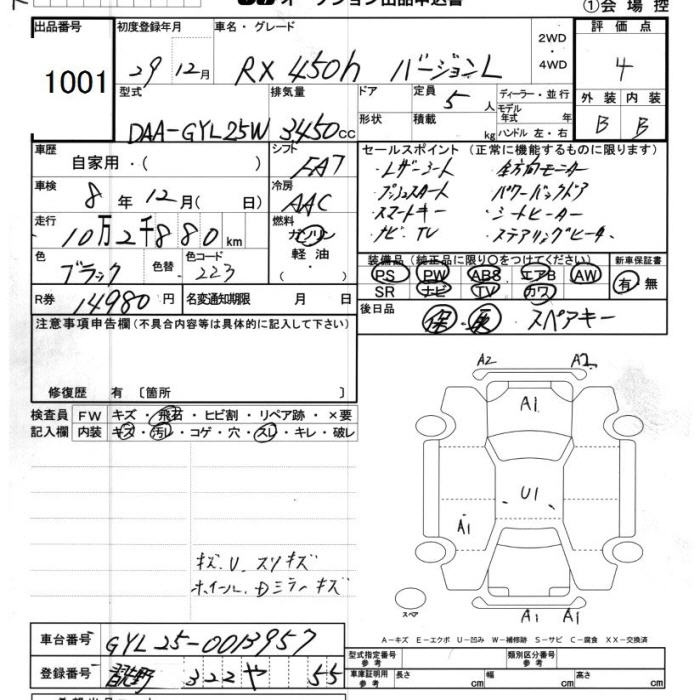 オークション出品申込書
①会場控
出品番号 1001
初度登録年月 29 12月
車名・グレード RX 450h バージョンL
2WD
・
4WD
評価点 4
型式 DAA-GYL25W
排気量 3450cc
ドア
形状
定員 5人
積載 kg
ディーラー・並行
モデル年式 年
ハンドル 左・右
外装 内装
B B
車歴 自家用・( )
シフト FA7
セールスポイント (正常に機能するものに限ります)
・レザーシート ・全方向モニター
・プッシュスタート ・パワーバックドア
・スマートキー ・シートヒーター
・ナビ、TV ・ステアリングヒーター
車検 8年12月( 日)
冷房 AAC
走行 10万2千880km
燃料 ガソリン
軽油・
色 ブラック
色替
色コード 223
装備品 (純正品に限り○をつけてください)
PS PW ABS エアB AW
SR ナビ TV カワ
新車保証書
有・無
R券 14980円
名変通知期限 月 日
後日品 保・取 スペアキー
注意事項申告欄 (不具合内容等は具体的に記入して下さい)
修復歴 有 〔箇所 〕
検査員 FW キズ・飛石・ヒビ割・リペア跡・×要
記入欄 内装 キズ・汚レ・コゲ・穴・スレ・キレ・破レ
A2 A2
A1
U1
A1
A1 A1
スペア
キズ、U、スリキズ
ホイール、Dミラーキズ
A−キズ E−エクボ U−凹み W−補修跡 S−サビ C−腐食 XX−交換済
車台番号 GYL25-0013957
登録番号 322 や 55
型式指定番号 参考
類別区分番号 参考
車庫証明用 参考 長さ cm 幅 cm 高さ cm